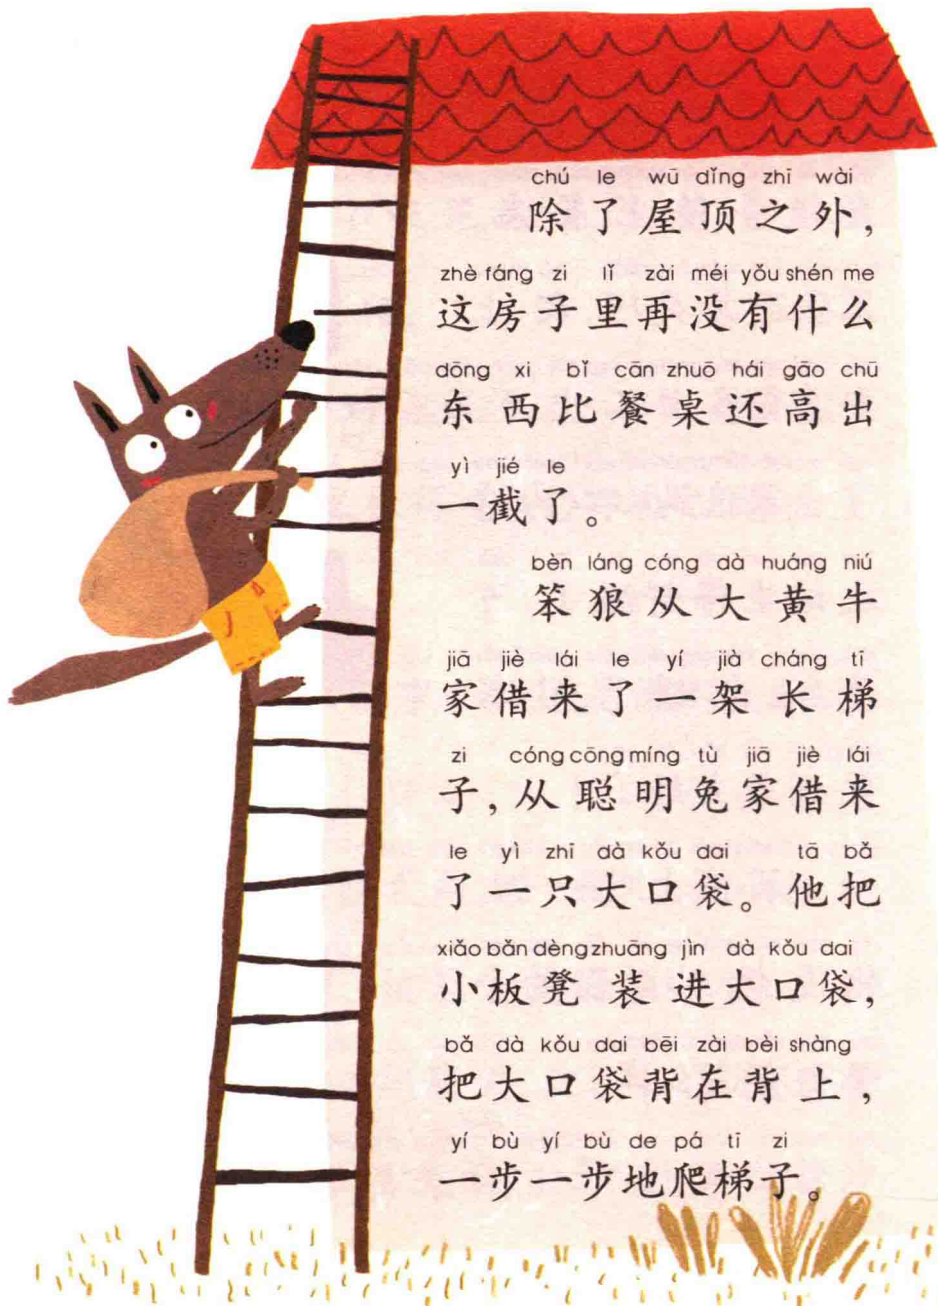 chú le wū dǐng zhī wài
除了屋顶之外，
zhè fáng zi lǐ zài méi yǒu shén me
这房子里再没有什么
dōng xi bǐ cān zhuō hái gāo chū
东西比餐桌还高出
yì jié le
一截了。
bèn láng cóng dà huáng niú
笨狼从大黄牛
jiā jiè lái le yí jià cháng tī
家借来了一架长梯
zi cóng cōng míng tù jiā jiè lái
子，从聪明兔家借来
le yì zhī dà kǒu dai tā bǎ
了一只大口袋。他把
xiǎo bǎn dèng zhuāng jìn dà kǒu dai
小板凳装进大口袋，
bǎ dà kǒu dai bēi zài bèi shàng
把大口袋背在背上，
yí bù yí bù de pá tī zi
一步一步地爬梯子。